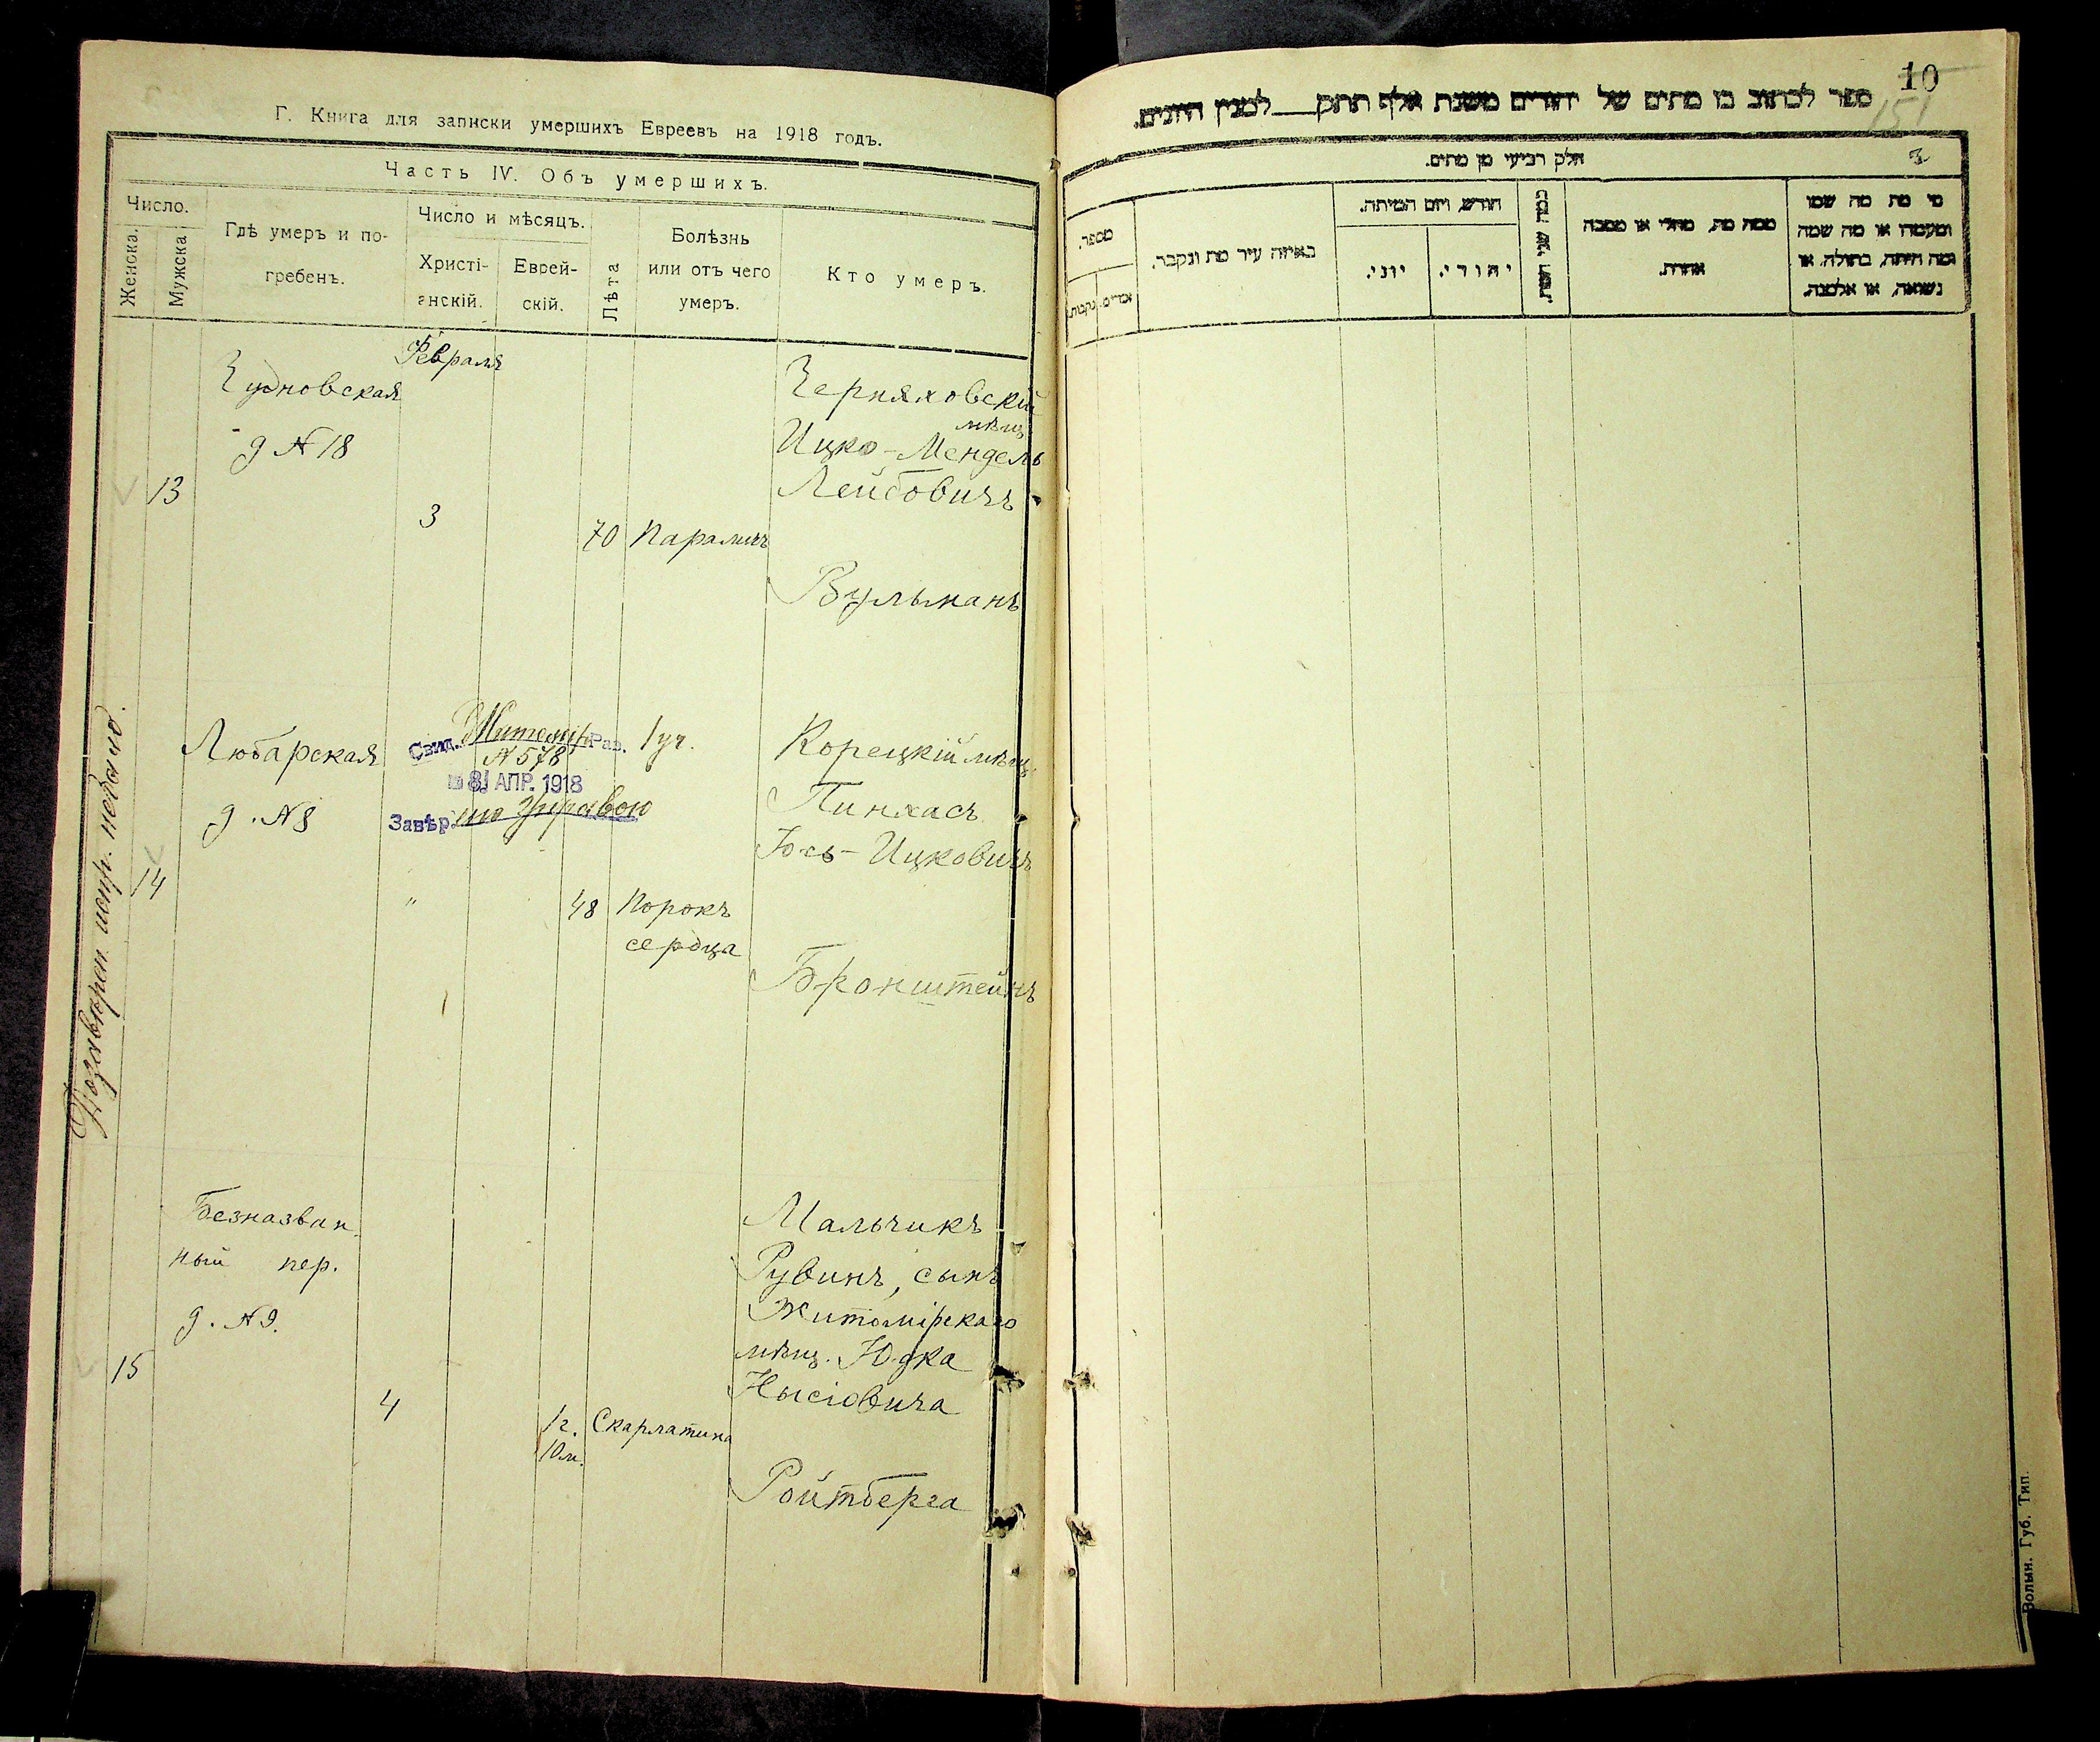 Г. Книга для записки умершихъ Евреевъ на 1918 годъ.
Часть IV. Объ умершихъ.
Число.
Женска.
Мужска
Гдѣ умеръ и по-
гребенъ.
Число и мѣсяцъ.
Христі-
анскій.
Еврей-
скій.
Лѣта
Болѣзнь
или отъ чего
умеръ.
Кто умеръ.
Февраля
Чудновская
д № 18
13
3
70
Параличъ
Черняховскій
мѣщ.
Ицко-Мендель
Лейбовичъ
Вульманъ
Любарская
д. № 8
14
Свид. Житомір Рав. 1 уч.
№ 578
8 АПР. 1918
Завѣр.
"
48
Порокъ
сердца
Корецкій мѣщ.
Пинхасъ
Юсь-Ицковичъ
Бронштейнъ
Безназван
ный пер.
д. № 9.
15
4
1 г.
10 м.
Скарлатина
Мальчикъ
Рувинъ, сынъ
Житомірскаго
мѣщ. Юдка
Нысіовича
Ройтберга
10
151
ספר לכתוב בו מתים של יהודים משנת אלף תתק___למנין היונים.
חלק רביעי מן מתים.
מספר.
זכרים.
נקבות.
באיזה עיר מת ונקבר.
חודש, ויום המיתה.
יוני.
יהודי.
כמה שני חייו.
ממה מת, מחלי או מסבה
אחרת.
מי מת מה שמו
ומעמדו או מה שמה
ומה היתה, בתולה, או
נשואה, או אלמנה.
Волын. Губ. Тип.